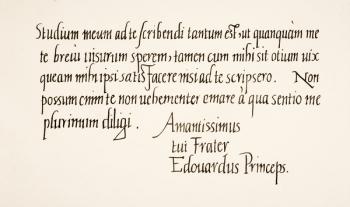 Studium meum ad te scribendi tantum est, ut quanquàm me
te breui uisurum sperem, tamen cum mihi sit otium uix
queam mihi ipsi satis facere nisi ad te scripsero. Non
possum enim te non uehementer amare à qua sentio me
plurimum diligi.
Amantissimus
tui Frater
Edouardus Princeps.